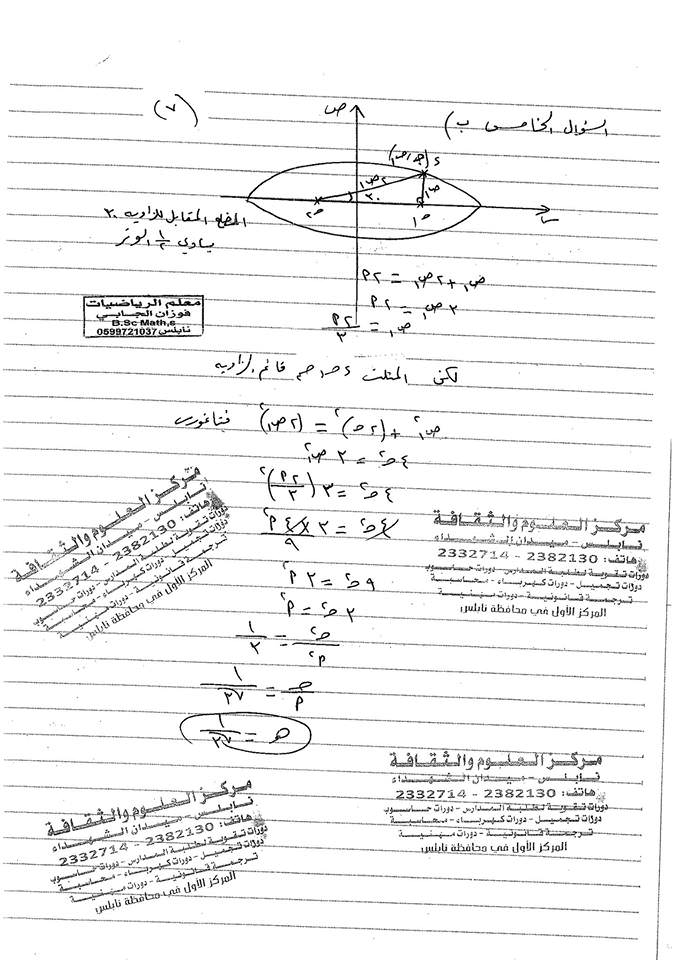 (٧)
السؤال الخامس ب)
ص
د (جـ، ص١)
٢ص١
ص١
٣٠
س
الضلع المقابل للزاوية ٣٠
يساوي ١/٢ الوتر
ص١ + ٢ص١ = ٢م
٣ص١ = ٢م
ص١ = ٢م/٣
معلم الرياضيات
فوزان الجابي
B.Sc Math,s
نابلس 0599721037
لكن المثلث قائم الزاوية
ص١² + (٢جـ)² = (٢ص١)² فيثاغورس
٤جـ² = ٣ص١²
٤جـ² = ٣(٢م/٣)²
٤جـ² = ٣ × ٤م²/٩
٩جـ² = ٣م²
٣جـ² = م²
جـ²/م² = ١/٣
جـ/م = ١/√٣
هـ = ١/√٣
مركز العلوم والثقافة
نابلس - ميدان الشهداء
هاتف: 2382130 - 2332714
دورات تقوية لطلبة المدارس - دورات حاسوب
دورات تجميل - دورات كهرباء - محاسبة
ترجمة قانونية - دورات مهنية
المركز الأول في محافظة نابلس
مركز العلوم والثقافة
نابلس - ميدان الشهداء
هاتف: 2382130 - 2332714
دورات تقوية لطلبة المدارس - دورات حاسوب
دورات تجميل - دورات كهرباء - محاسبة
ترجمة قانونية - دورات مهنية
المركز الأول في محافظة نابلس
مركز العلوم والثقافة
نابلس - ميدان الشهداء
هاتف: 2382130 - 2332714
دورات تقوية لطلبة المدارس - دورات حاسوب
دورات تجميل - دورات كهرباء - محاسبة
ترجمة قانونية - دورات مهنية
المركز الأول في محافظة نابلس
مركز العلوم والثقافة
نابلس - ميدان الشهداء
هاتف: 2382130 - 2332714
دورات تقوية لطلبة المدارس - دورات حاسوب
دورات تجميل - دورات كهرباء - محاسبة
ترجمة قانونية - دورات مهنية
المركز الأول في محافظة نابلس